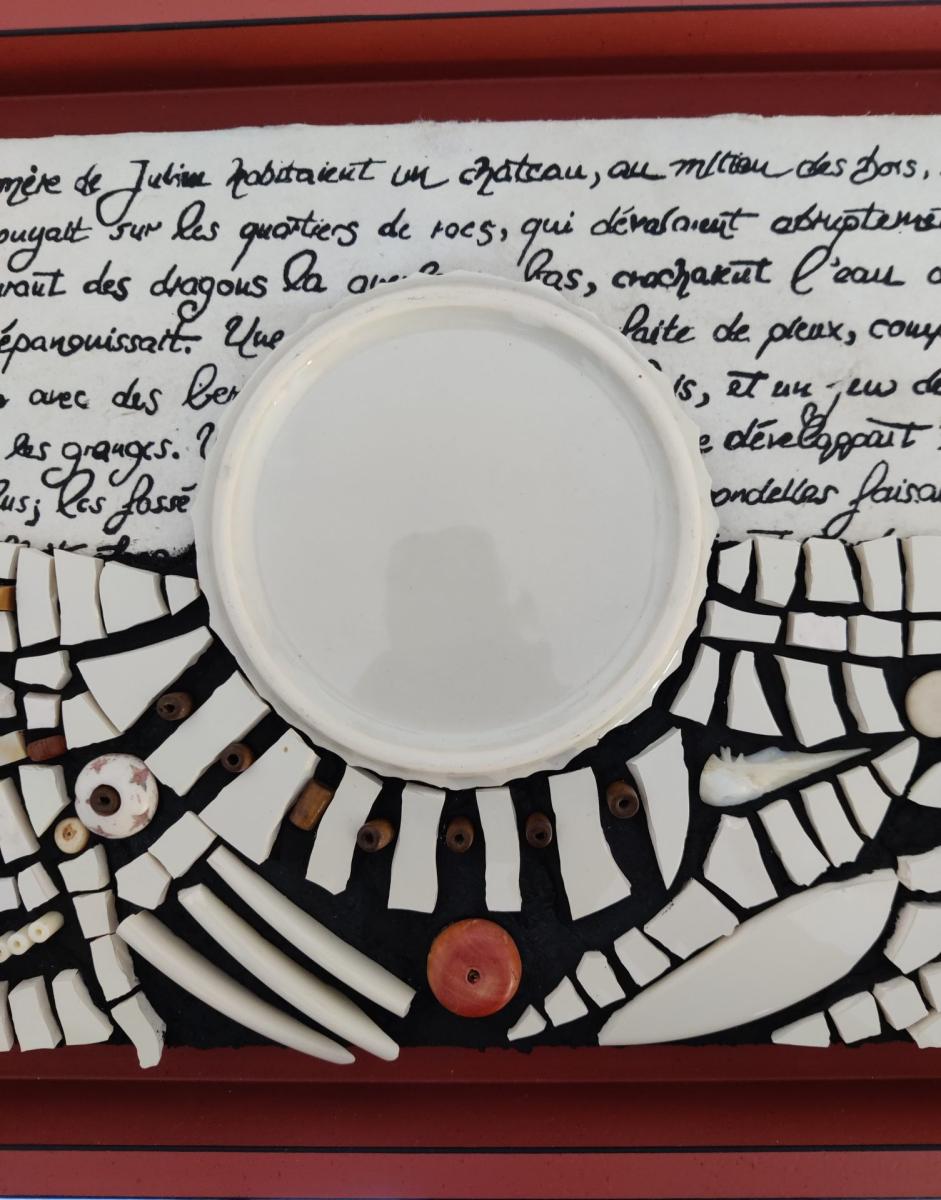 mère de Julien habitaient un château, au milieu des bois,
ouyait sur les quartiers de rocs, qui dévalaient abrupteme
vant des dragons la bas, crachaient l'eau
épanouissait. Une faite de pieux, comp
avec des ber is, et un jeu de
les granges. e développait
lus; les fossé ondelles faisa